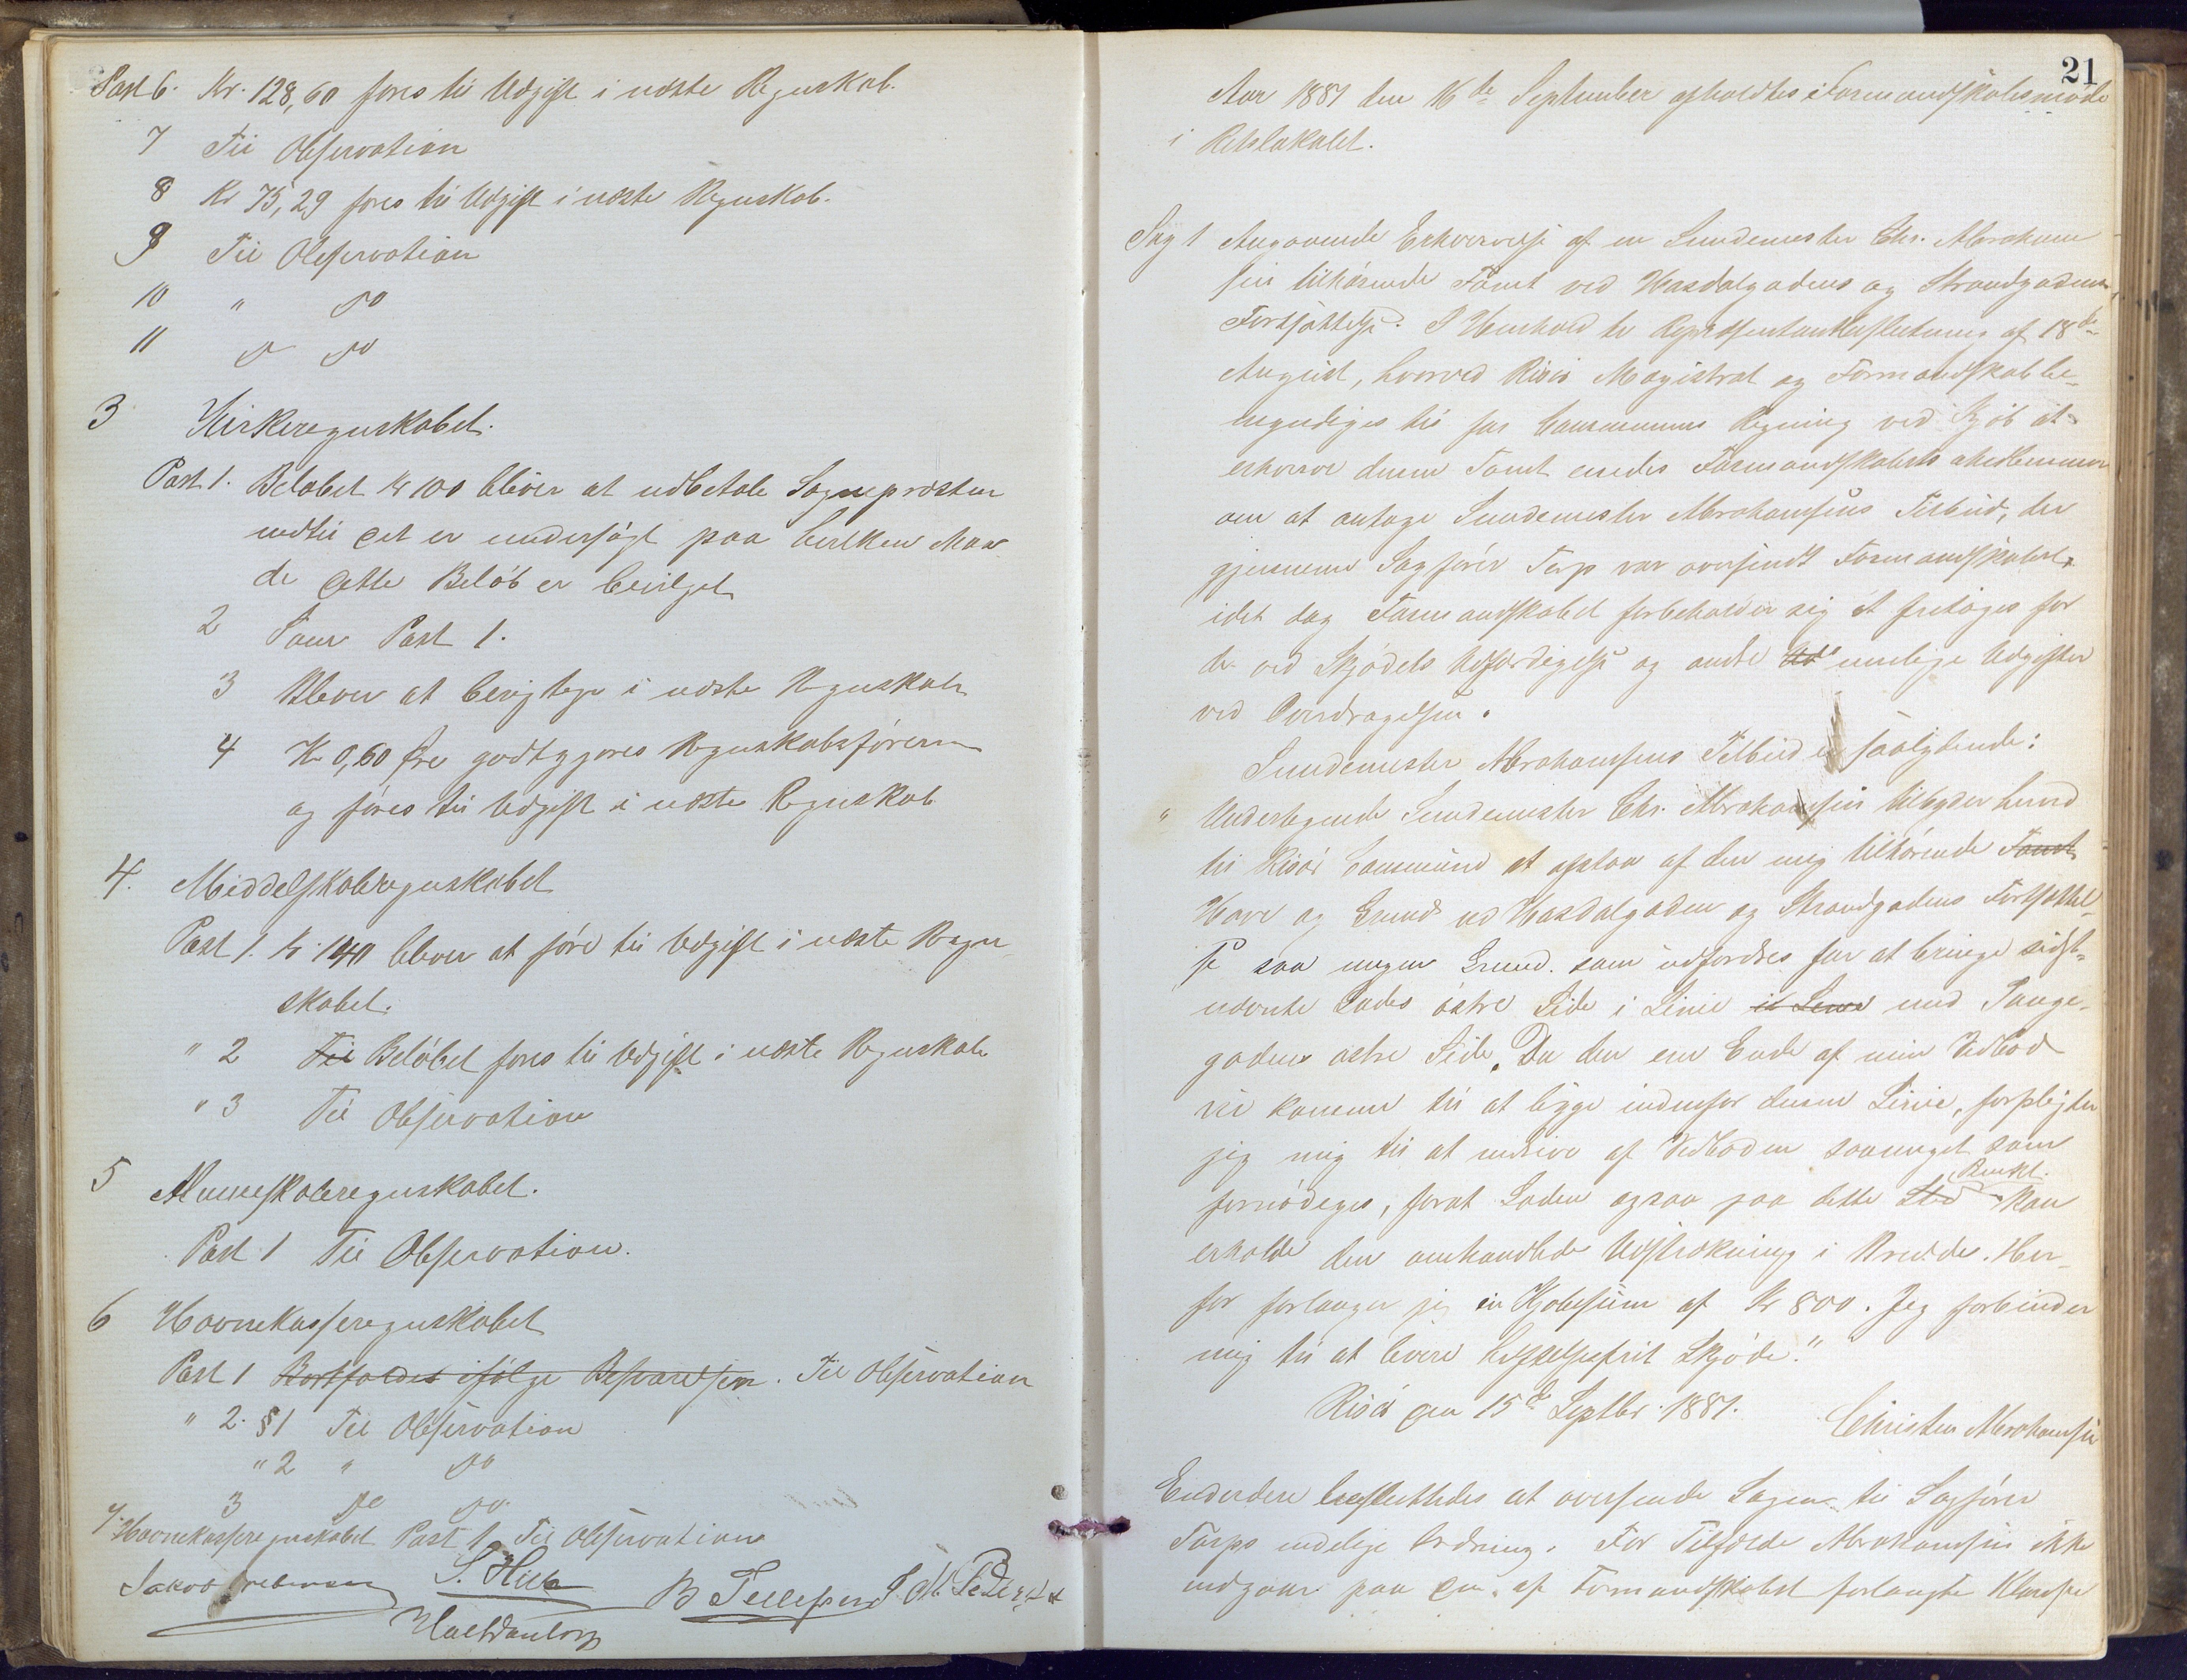 Post 6. Kr. 128,60 føres til Udgift i næste Regnskab.
7 Til Observation
8 Kr 75,29 føres til Udgift i næste Regnskab.
9 Til Observation
10 " do
11 do do
3 Kirkeregnskabet.
Post 1. Beløbet Kr 100 bliver at udbetale Sogneprosten
indtil det er undersøgt paa hvilken Maa
de dette Beløb er bevilget
2 Som Post 1.
3 Bliver at berigtige i næste Regnskab
4 Kr 0,60 Øre godtgjøres Regnskabsføreren
og føres til Udgift i næste Regnskab
4. Middelskoleregnskabet
Post 1. Kr. 140 bliver at føre til Udgift i næste Regn
skabet.
" 2 Til Beløbet føres til Udgift i næste Regnskab
" 3 Til Observation
5 Almueskoleregnskabet.
Post 1 Til Observation.
6 Havnekasseregnskabet
Post 1 Bortfaldes ifølge Besvarelsen. Til Observation
" 2. §1 Til Observation
" 2 " do
3 do do.
7. Havnekasseregnskabet Post 1 Til Observation
Jakob S. Hill B Tellefsen J. M. Pedersen
21
Aar 1881 den 16de September afholdtes Formandskabsmøde
i Retslokalet.
Sag 1 Angaaende Erhvervelse af en Tømmermester Chr. Abraham
sen tilhørende Tomt ved Hasdalgadens og Strandgadens
Fortsættelse. I Henhold til Repræsentantbeslutning af 18de
August, hvorved Risør Magistrat og Formandskab be-
myndiges til for Communens Regning ved Kjøb at
erhverve denne Tomt enedes Formandskabets Medlemmer
om at antage Abrahamsens Tilbud, der
gjennem Sagfører Torp var oversendt Formandskabet,
idet dog Formandskabet forbeholder sig at fritages for
de ved Skjødets Udfærdigelse og andre mulige Udgifter
ved Overdragelsen.
Abrahamsens Tilbud er saalydende:
" Undertegnede Chr. Abrahamsen tilbyder herved
til Risør Commune at afstaa af den mig tilhørende Tomt
Have og Grund ved Hasdalgaden og Strandgadens Fortsættel-
se saa megen Grund som udfordres for at bringe sidst-
nævnte Gades østre Side i Linie med Tange-
gadens østre Side. Da den ene Ende af min Vedbod
vil komme til at ligge indenfor denne Linie, forpligter
jeg mig til at nedrive af Vedboden saameget som
fornødiges, forat Gaden ogsaa paa dette Sted Punkt. kan
erholde den omhandlede Udstrækning i Bredde. Her-
for forlanger jeg en Kjøbesum af Kr 800. Jeg forbinder
mig til at levere hæftelsefrit Skjøde."
Risør den 15de Septbr. 1881. Christen Abrahamsen
Endvidere besluttedes at oversende Sagen til Sagfører
Torps endelige Ordning. For Tilfælde Abrahamsen ikke
indgaar paa den af Formandskabet forlangte Klausul